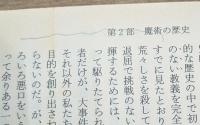 第2部 魔術の歴史
的な歴史の中で初
ない教義を完全
すでに見たとおり
荒々しさを殺して
退屈で挑戦のない
揮するためには、
って駆りたてられ
者だけが、大事件
それ以外の私たち
目的を創り出さね
らないのだ。が、
ろいろ悪口をいわ
って余りある一